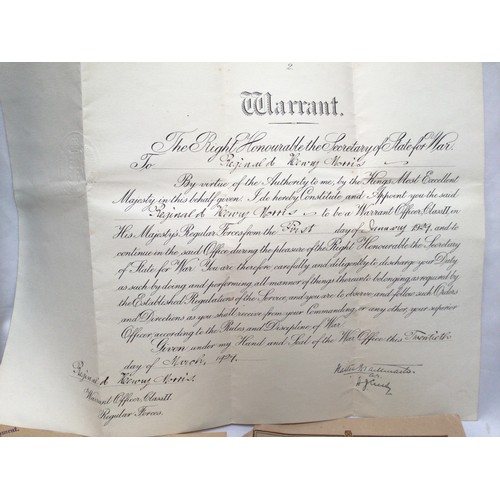 2.
Warrant.
The Right Honourable the Secretary of State for War.
To Reginald Henry Norris
By virtue of the Authority to me, by the King's Most Excellent
Majesty in this behalf given I do hereby Constitute and Appoint you the said
Reginald Henry Norris to be a Warrant Officer, Class II, in
His Majesty's Regular Forces from the First day of January 1921, and to
continue in the said Office during the pleasure of the Right Honourable the Secretary
of State for War. You are therefore carefully and diligently to discharge your Duty
as such by doing and performing all manner of things thereunto belonging, as required by
the Established Regulations of the Service, and you are to observe and follow such Orders
and Directions as you shall receive from your Commanding, or any other, your superior
Officer, according to the Rules and Discipline of War.
Given under my Hand and Seal of the War Office this Twentieth
day of March, 1921.
Reginald Henry Norris
Warrant Officer, Class II.
Regular Forces.